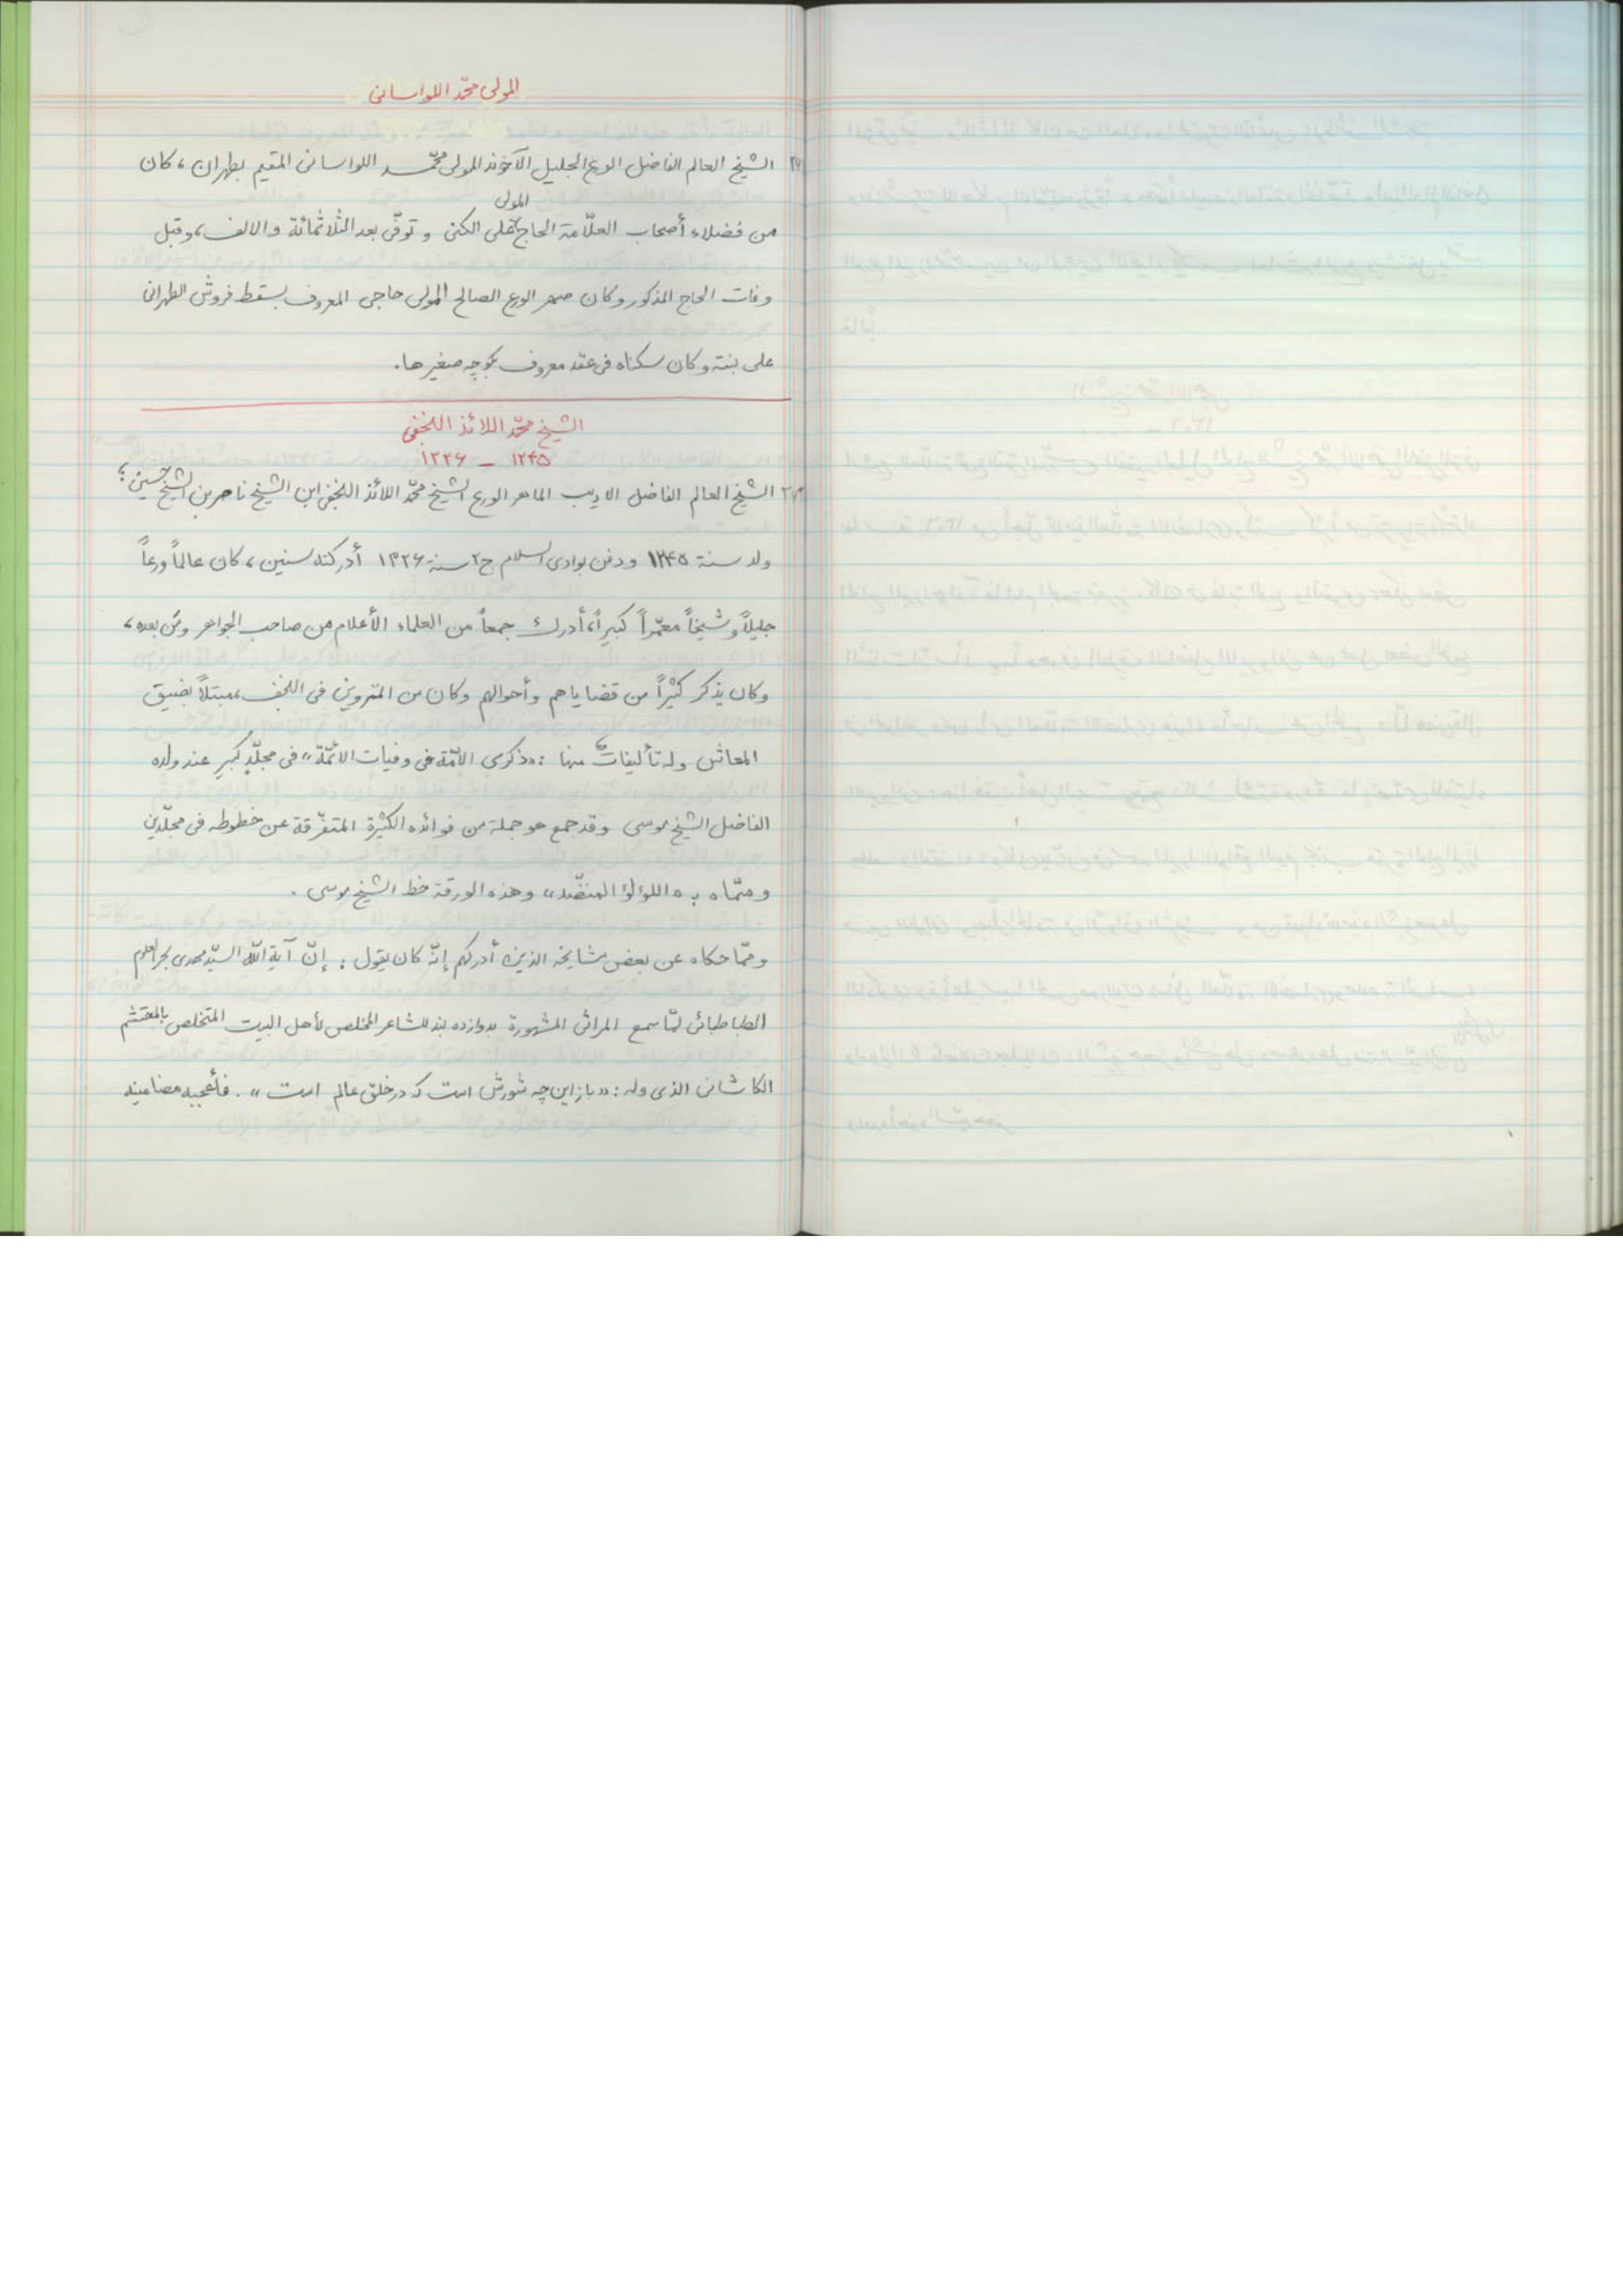 المولى محمّد اللواسانى
الشيخ العالم الفاضل الورع الجليل الآخوند المولى محمّد اللواسانى المقيم بطهران، كان
المولى
من فضلاء أصحاب العلّامة الحاج على الكنى و توفّى بعد الثلاثمائة والالف، وقبل
وفات الحاج المذكور وكان صهر الورع الصالح المولى حاجى المعروف بسقط فروش الطهرانى
على بنته وكان سكناه فى معروف بكوچه صغيرها.
الشيخ محمّد اللائذ النجفى
١٢٤٥ - ١٣٢۶
الشيخ العالم الفاضل الاديب الماهر الورع الشيخ محمّد اللائذ النجفى ابن الشيخ ناصر بن الشيخ حسين؛
ولد سنة ١٢٤٥ ودفن بوادى السلام ج٢ سنة ١٣٢۶ أدركته سنين، كان عالماً ورعاً
جليلاً وشيخاً معمّراً كبيراً، أدرك جمعاً من العلماء الأعلام من صاحب الجواهر ومَن بعده،
وكان يذكر كثيراً من قضاياهم وأحوالهم وكان من المنزوين فى النجف، مبتلاً بضيق
المعاش وله تأليفات منها : «ذكرى الائمّة فى وفيات الائمّة» فى مجلّد كبير عند ولده
الفاضل الشيخ موسى وقد جمع هو جملة من فوائده الكثيرة المتفرّقة عن خطوطه فى مجلّدين
وسمّاه بـ «اللؤلؤ المنضّد» وهذه الورقة خط الشيخ موسى.
وممّا حكاه عن بعض مشايخه الذين أدركهم إنّه كان يقول : إنّ آية اللّه السيّد مهدى بحرالعلوم
الطباطبائى لمّا سمع المراثى المشهورة بدوازده بند للشاعر المخلص لأهل البيت المتخلص بالمحتشم
الكاشانى الذى أوله : «باز اين چه شورش است كه در خلق عالم است». فأعجبه مضامينه